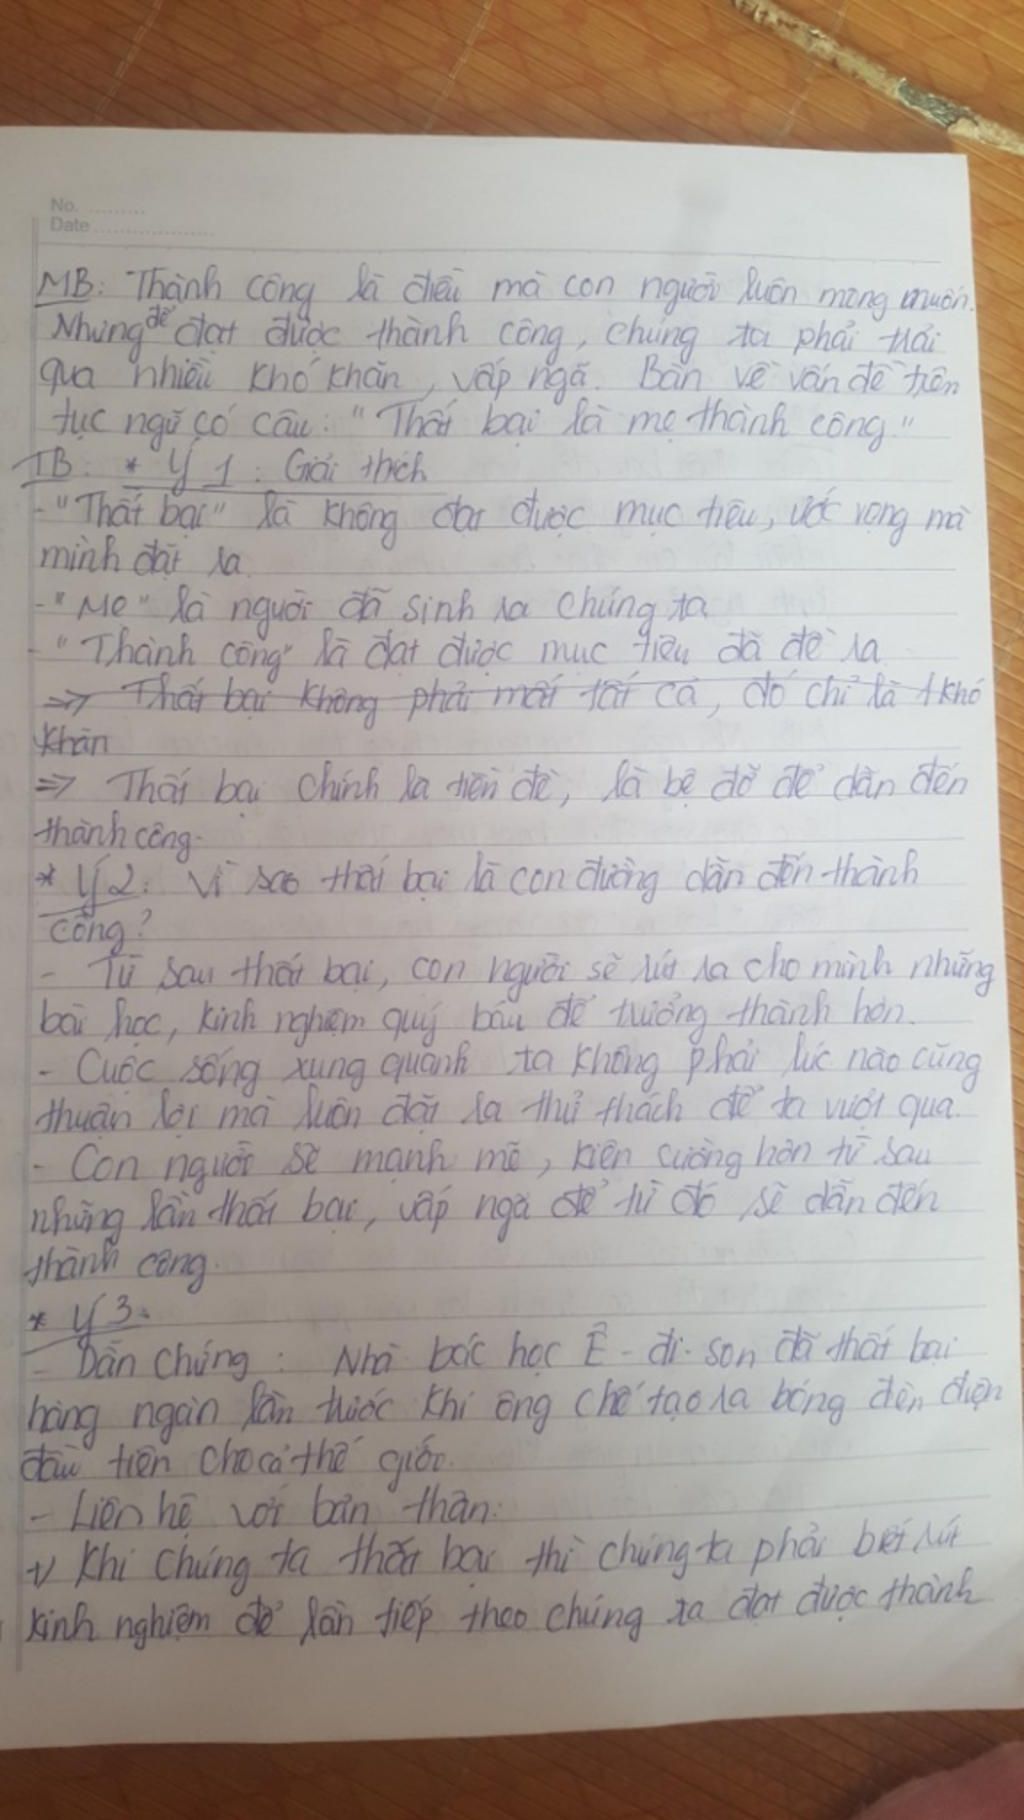 No. .........
Date ..................
MB: Thành công là điều mà con người luôn mong muốn.
Nhưng để đạt được thành công, chúng ta phải trải
qua nhiều khó khăn, vấp ngã. Bàn về vấn đề trên
tục ngữ có câu: "Thất bại là mẹ thành công."
TB: * Ý 1: Giải thích
- "Thất bại" là không đạt được mục tiêu, ước vọng mà
mình đặt ra.
- "Mẹ" là người đã sinh ra chúng ta
- "Thành công" là đạt được mục tiêu đã đề ra
=> Thất bại không phải mất tất cả, đó chỉ là 1 khó
khăn
=> Thất bại chính là tiền đề, là bệ đỡ để dẫn đến
thành công.
* Ý 2: Vì sao thất bại là con đường dẫn đến thành
công?
- Từ sau thất bại, con người sẽ rút ra cho mình những
bài học, kinh nghiệm quý báu để trưởng thành hơn.
- Cuộc sống xung quanh ta không phải lúc nào cũng
thuận lợi mà luôn đặt ra thử thách để ta vượt qua.
- Con người sẽ mạnh mẽ, kiên cường hơn từ sau
những lần thất bại, vấp ngã để từ đó sẽ dẫn đến
thành công.
* Ý 3:
- Dẫn chứng: Nhà bác học Ê-đi-son đã thất bại
hàng ngàn lần trước khi ông chế tạo ra bóng đèn điện
đầu tiên cho cả thế giới.
- Liên hệ với bản thân:
+ Khi chúng ta thất bại thì chúng ta phải biết rút
kinh nghiệm để lần tiếp theo chúng ta đạt được thành